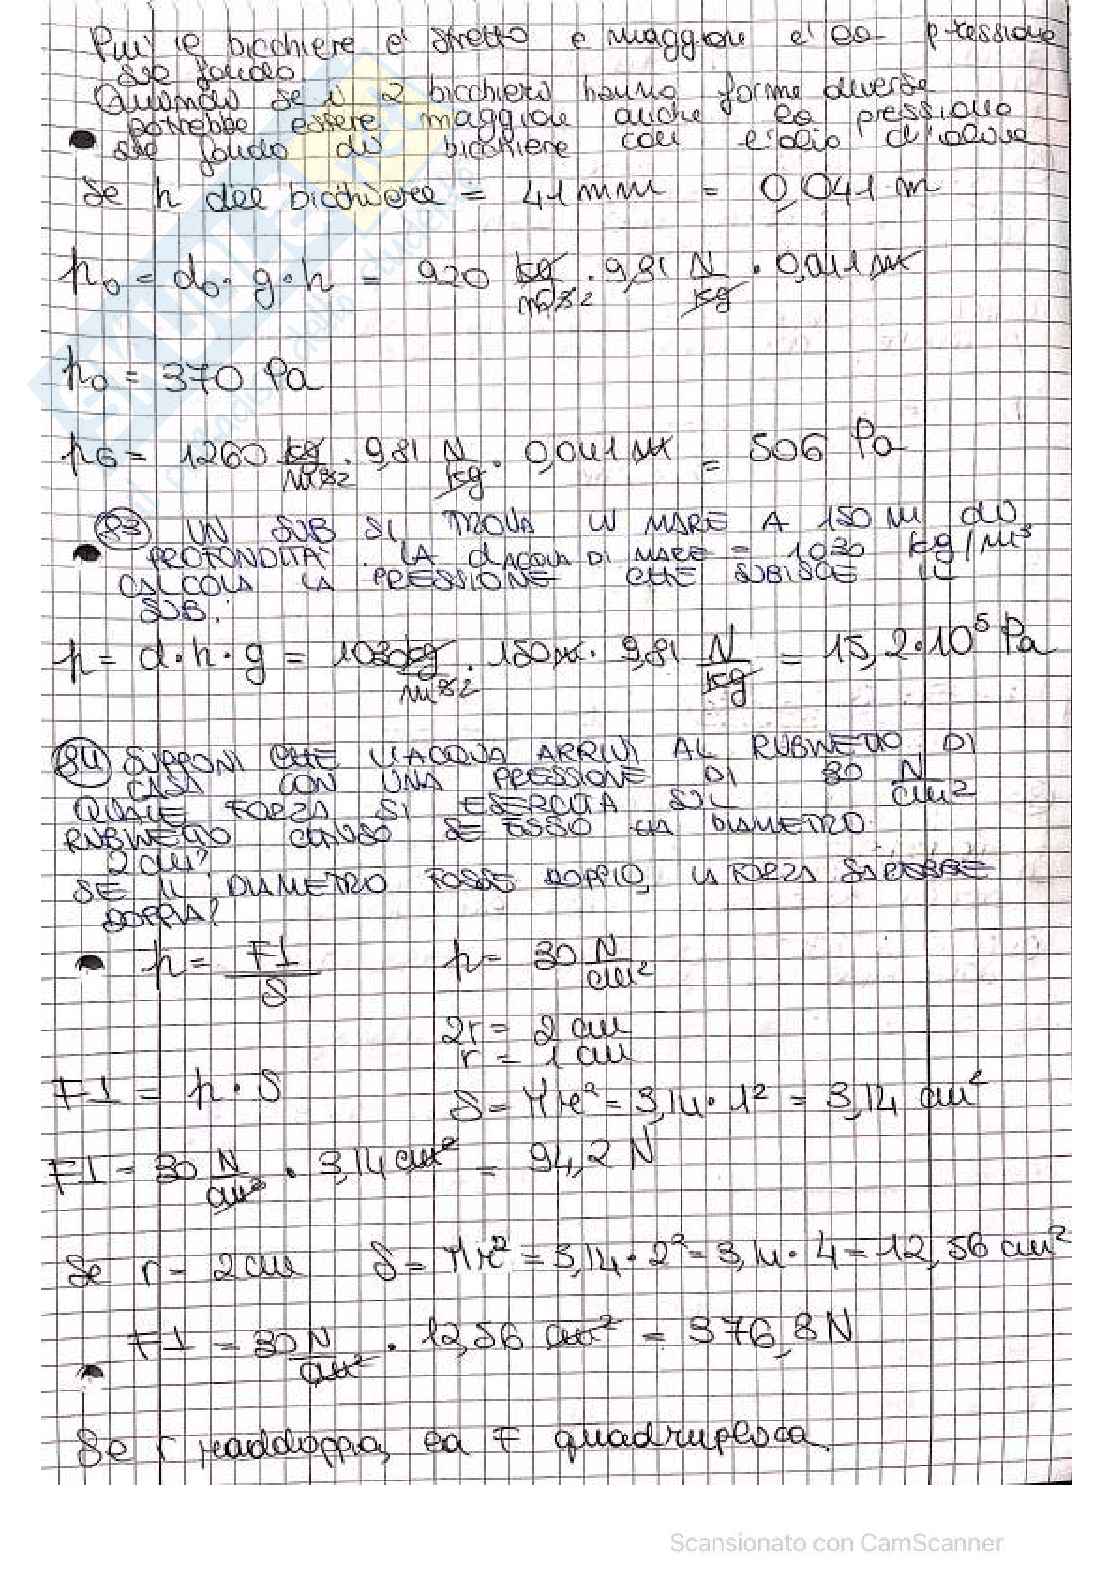 Più il bicchiere è stretto e maggiore è la pressione
sul fondo.
Quindi se i 2 bicchieri hanno forme diverse
potrebbe essere maggiore anche la pressione
sul fondo del bicchiere con l'olio d'oliva
Se h del bicchiere = 41 mm = 0,041 m
p₀ = d₀ · g · h = 920 kg/m³² · 9,81 N/kg · 0,041 m
p₀ = 370 Pa
pG = 1260 kg/m³² · 9,81 N/kg · 0,041 m = 506 Pa
83 UN SUB SI TROVA IN MARE A 150 m DI
PROFONDITÀ. LA d ACQUA DI MARE = 1030 kg/m³
CALCOLA LA PRESSIONE CHE SUBISCE IL
SUB.
p = d · h · g = 1030 kg/m³² · 150 m · 9,81 N/kg = 15,2 · 10⁵ Pa
84 SUPPONI CHE L'ACQUA ARRIVI AL RUBINETTO DI
CASA CON UNA PRESSIONE DI 30 N/cm²
QUALE FORZA SI ESERCITA SUL
RUBINETTO CHIUSO SE ESSO HA DIAMETRO
2 cm?
SE IL DIAMETRO FOSSE DOPPIO, LA FORZA SAREBBE
DOPPIA?
p = F1/S p = 30 N/cm²
2r = 2 cm
r = 1 cm
F1 = p · S
S = πr² = 3,14 · 1² = 3,14 cm²
F1 = 30 N/cm² · 3,14 cm² = 94,2 N
Se r = 2 cm S = πr² = 3,14 · 2² = 3,14 · 4 = 12,56 cm²
F1 = 30 N/cm² · 12,56 cm² = 376,8 N
Se r raddoppia, la F quadruplica.
Scansionato con CamScanner